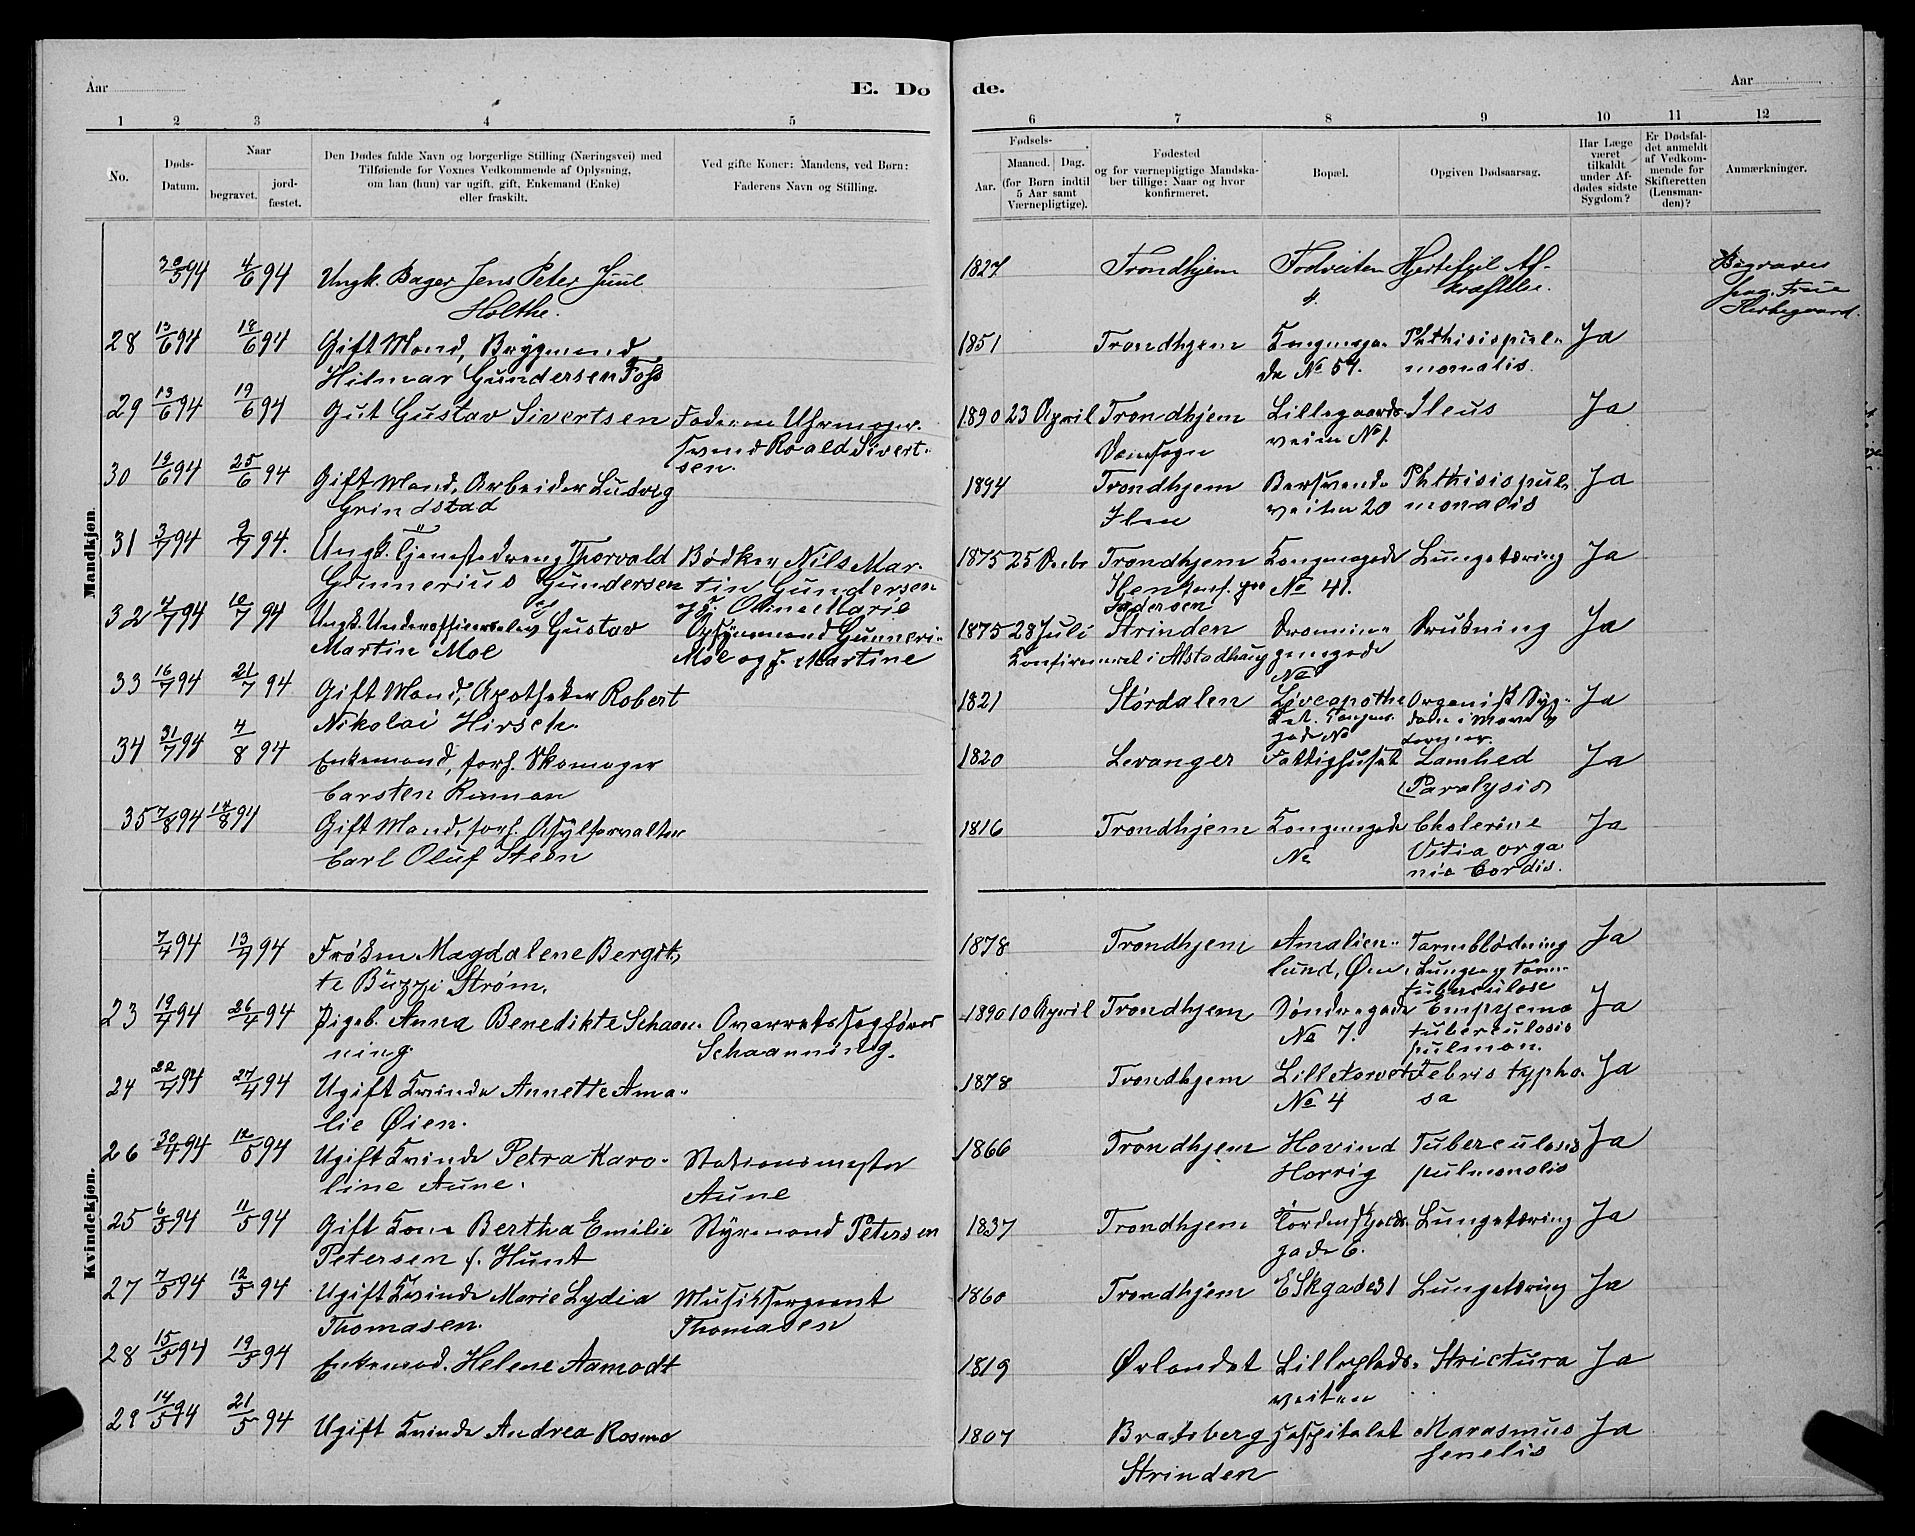 Aar
E. Dø
1 2 3 4 5
No.
Døds-
Datum.
Naar
begravet.
jord-
fæstet.
Den Dødes fulde Navn og borgerlige Stilling (Næringsvei) med
Tilføiende for Voxnes Vedkommende af Oplysning,
om han (hun) var ugift, gift, Enkemand (Enke)
eller fraskilt.
Ved gifte Koner: Mandens, ved Børn:
Faderens Navn og Stilling.
Mandkjøn
30/5 94 4/6 94 Ungk. Bager Jens Peter Juul
Holthe.
28 13/6 94 18/6 94 Gift Mand, Brygmand
Hilmar Gundersen Foss
29 13/6 94 19/6 94 Gut Gustav Sivertsen Faderen Uhrmager-
svend Roald Sivert-
sen.
30 19/6 94 25/6 94 Gift Mand, Arbeider Ludvig
Grindstad
31 3/7 94 9/7 94. Ungk. Tjenestedreng Thorvald Bødker Nils Mar-
Gunnerius Gundersen tin Gundersen
og H. Oline Marie
32 4/7 94 10/7 94 Ungk. Underofficerselev Gustav Opsynsmand Gunneri-
Martin Moe Moe og H. Martine
33 16/7 94 21/7 94 Gift Mand, Apotheker Robert
Nikolai Hirsch.
34 31/7 94 4/8 94 Enkemand, forh. Skomager
Carsten Rinnan
35 7/8 94 14/8 94 Gift Mand, forh. Asylforvalter
Carl Oluf Steen
Kvindekjøn.
7/4 94 13/4 94 Frøken Magdalene Bergit-
te Buzzi Strøm.
23 19/4 94 26/4 94 Pigeb. Anna Benedikte Schaan- Overretssagfører
ning. Schaanning.
24 22/4 94 27/4 94 Ugift Kvinde Annette Ama-
lie Øien.
26 30/4 94 12/5 94 Ugift Kvinde Petra Karo- Stationsmester
line Aune. Aune
25 6/5 94 11/5 94 Gift Kone Bertha Emilie Styrmand Petersen
Petersen f. Hunt
27 7/5 94 12/5 94 Ugift Kvinde Marie Lydia Musiksergeant
Thomasen. Thomasen
28 15/5 94 19/5 94 Enkemad. Helene Aamodt
29 14/5 94 21/5 94 Ugift Kvinde Andrea Rosmo
de.
Aar
6 7 8 9 10 11 12
Fødsels-
Aar.
Maaned. Dag.
(for Børn indtil
5 Aar samt
Værnepligtige).
Fødested
og for værnepligtige Mandska-
ber tillige: Naar og hvor
konfirmeret.
Bopæl.
Opgiven Dødsaarsag.
Har Læge
været
tilkaldt
under Af-
dødes sidste
Sygdom?
Er Dødsfal-
det anmeldt
af Vedkom-
mende for
Skifteretten
(Lensman-
den)?
Anmærkninger.
1827 Trondhjem Fodveiten Hjertefeil Af-
4. kræftelse.
Begraves
paa Frue
Kirkegaard.
1851 Trondhjem Kongensga- Phthisis pul- Ja
de No 54. monalis.
1890 23 April Trondhjem Lillegaards- Ileus Ja
Domsogn veien No 1.
1894 Trondhjem Bersvends- Phthisis pul- Ja
Ilen veiten 20 monalis
1875 25 Decbr Trondhjem Kongensgade Lungetæring Ja
No 41.
1875 28 Juli Strinden Dronnin- Drukning Ja
Konfirmeret i Alstadhaug gensgade
No
1821 Størdalen Løveapothe- Organisk Syg- Ja
ket. Kongens- dom i Mave og
gade No Tarmer.
1820 Levanger Fattighuset Lamhed Ja
(Paralysis)
1816 Trondhjem Kongensgade Cholerine Ja
No Vitia orga
nia Cordis.
1878 Trondhjem Amalien- Tarmblødning Ja
lund, Øen. Lunge og Tarm-
tuberculose
1890 10 April Trondhjem Søndregade Empyema Ja
No 7. tuberculosis
pulmon.
1878 Trondhjem Lilletorvet Febris typho- Ja
No 4 sa
1866 Trondhjem Hovind Tuberculosis Ja
Horrig pulmonalis
1837 Trondhjem Tordenskjolds- Lungetæring Ja
gade 6.
1860 Trondhjem E Skgades 1 Lungetæring Ja
1819 Ørlandet Lilleplads- Strictura Ja
veiten
1807 Bratsberg Hospitalet Marasmus Ja
Strinden senelis